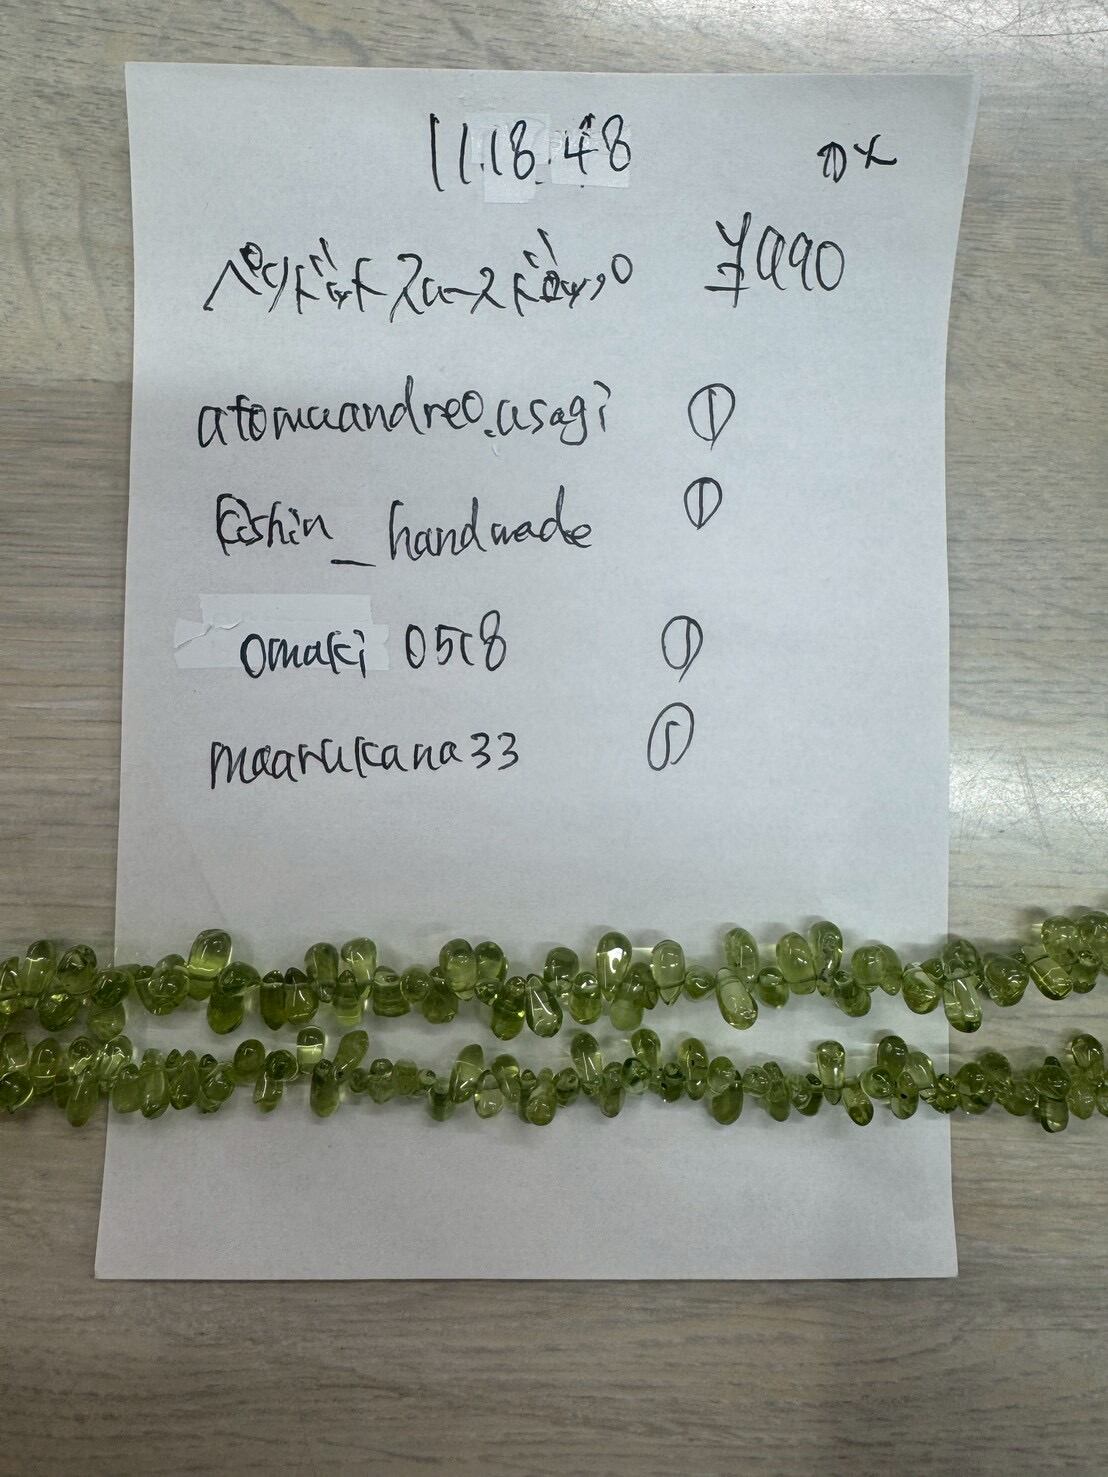 11.18.48
ペリドットスムースドロップ ¥990
atomuandreo.usagi ①
Kishin_handmade ①
omaki 0518 ①
maarukana33 ⑤